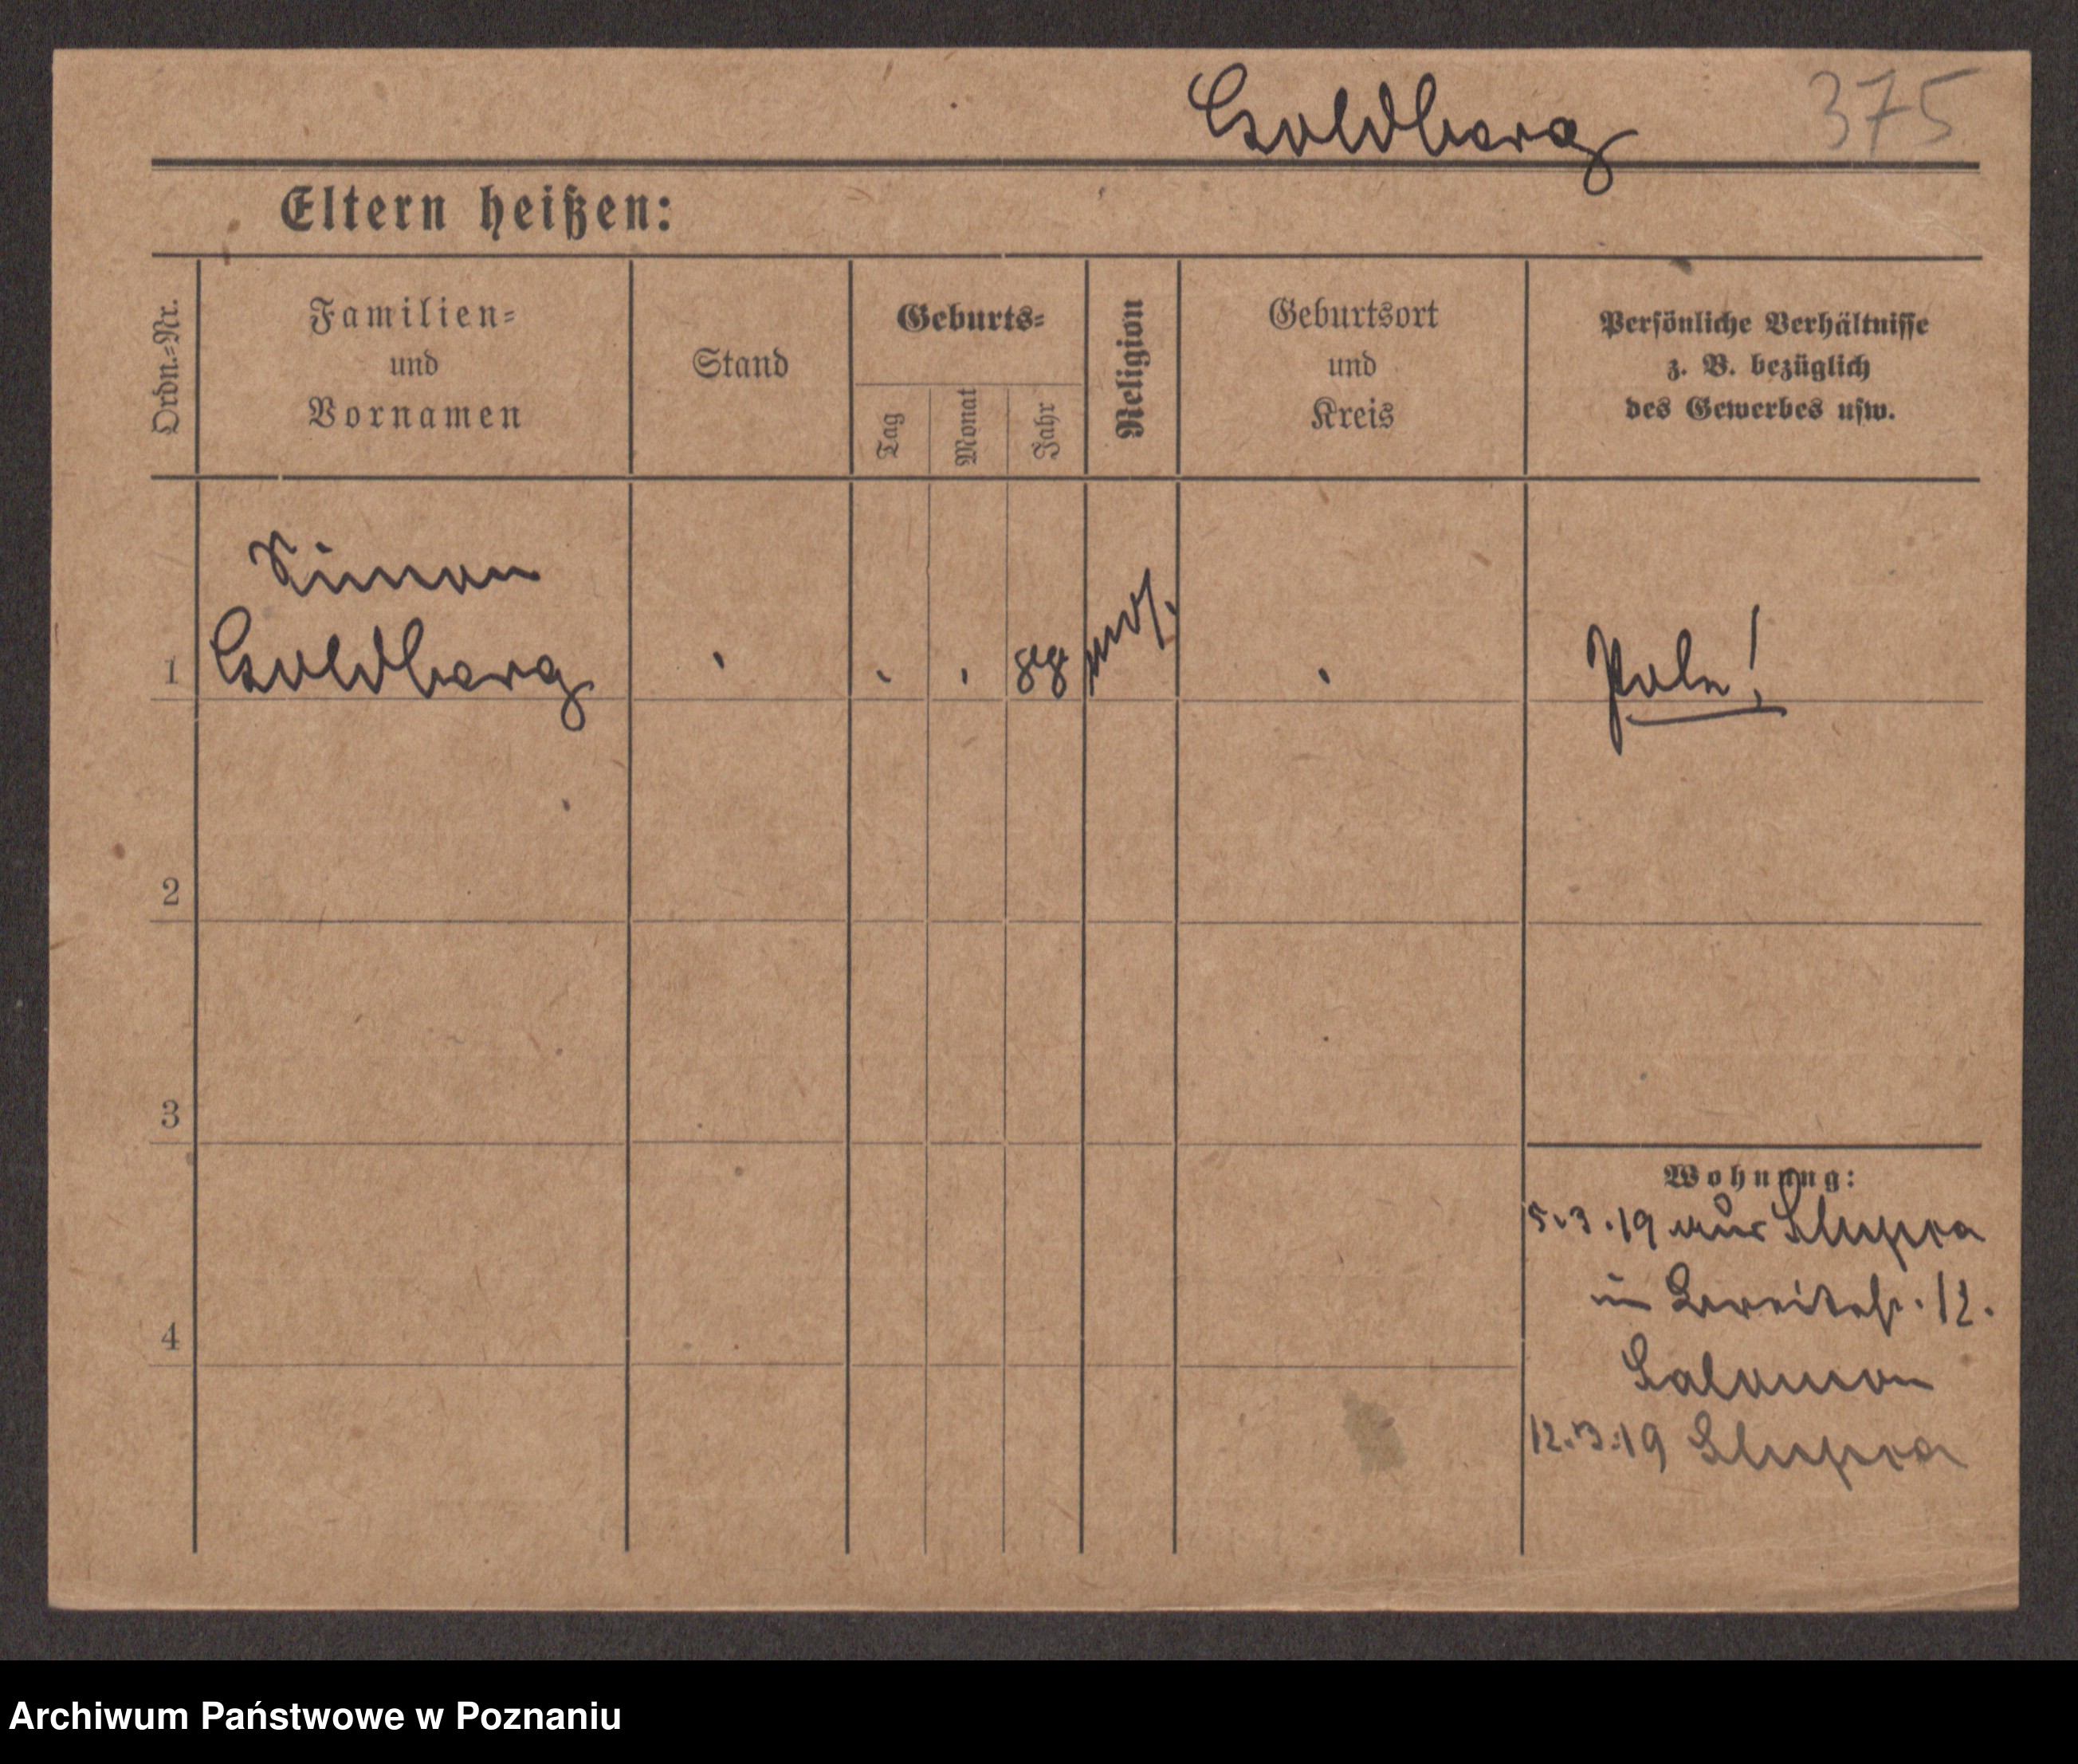 Goldberg 375
Eltern heißen:
Ordn.=Nr.
Familien=
und
Vornamen
Stand
Geburts=
Tag
Monat
Jahr
Religion
Geburtsort
und
Kreis
Persönliche Verhältnisse
z. B. bezüglich
des Gewerbes usw.
Simon
1 Goldberg
mos.
Pole!
2
3
Wohnung:
5.3.19 aus Slupca
in Breitestr. 12.
4
Salomon
12.3.19 Slupca
Archiwum Państwowe w Poznaniu